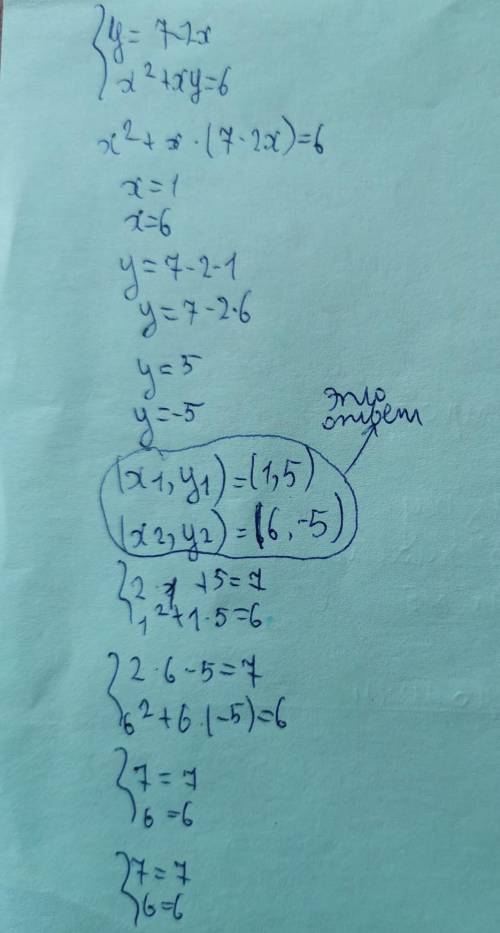 {y = 7-2x
x²+xy=6
x²+x·(7-2x)=6
x=1
x=6
y=7-2·1
y=7-2·6
y=5
y=-5
это
ответ
(x1,y1)=(1,5)
(x2,y2)=(6,-5)
{2·1+5=7
1²+1·5=6
{2·6-5=7
6²+6·(-5)=6
{7=7
6=6
{7=7
6=6